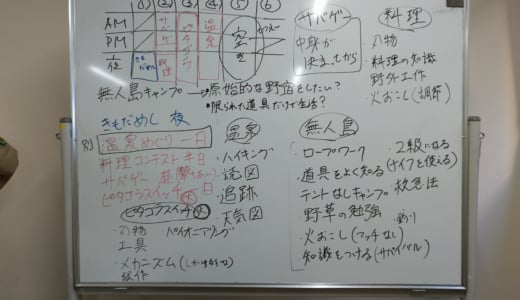 ① ② ③ ④ ⑤ ⑥
AM
PM
夜
サバゲー
料理
ピタゴラ
温泉
空き
きもだめし
サバゲー
中身が
決まってから
料理
刃物
料理の知識
野外工作
火おこし(調節)
無人島キャンプ→・原始的な野宿をしたい?
・限られた道具だけで生活?
きもだめし 夜
別
温泉めぐり 一日
料理コンテスト 半日
サバゲー 昼
ピタゴラスイッチ 一日
ピタゴラスイッチ 大
・刃物 ・パイオニアリング
工具
・メカニズム
操作
温泉
・ハイキング
・読図
・追跡
・天気図
無人島
・ロープワーク ・2級になる
・道具をよく知る(ナイフを使える)
・テントなしキャンプ 救急法
・野草の勉強 ・釣り
・火おこし(マッチなし)
・知識をつける(サバイバル)